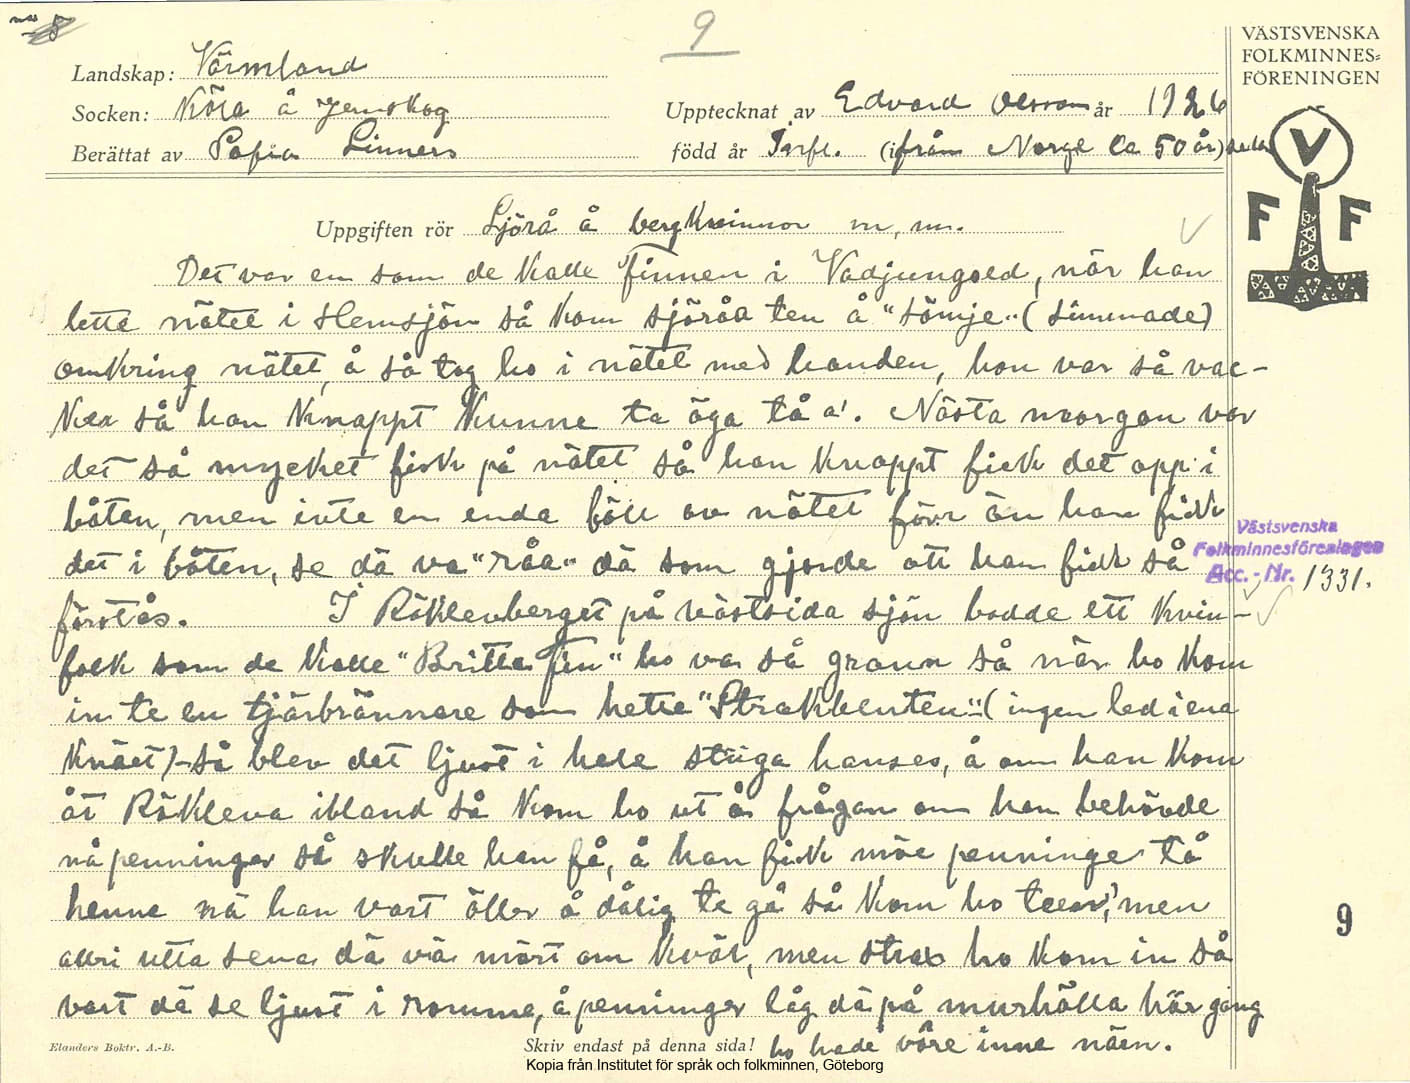 9
VÄSTSVENSKA
FOLKMINNES=
FÖRENINGEN
V
F F
Landskap: Värmland
Socken: Köla å Jernskog
Upptecknat av Edvard Olsson år 1926
Berättat av Sofia Linners
född år Torfl. (från Norge Ca 50 år) sedan
Uppgiften rör Sjörå å bergkvinnor m, m.
Det var en som de kalle Finnen i Vadjungsed, när han
lette nätet i Hemsjön så kom sjöråa ten å "sömje" (simmade)
omkring nätet, å så tog ho i nätet med handen, hon var så vac-
ker så han knappt kunne ta öga tå a'. Nästa morgon var
det så mycket fisk på nätet så han knappt fick det opp i
båten, men inte en enda föll av nätet förr än han fick
det i båten, se dä va "råa" dä som gjorde att han fick så
förstås. I Räklevberget på västsida sjön bodde ett kvin-
folk som de kalle "Britta Fin" ho va så grann så när ho kom
in te en tjärbrännare som hette "Strakbenten" (ingen led i ena
knäet) så blev det ljust i hele stuga hanses, å om han kom
åt Räkleva ibland så kom ho ut å frågan om han behövde
nå penninger så skulle han få, å han fick möe penninger tå
henne nä han vart äller å dålig te gå så kom ho teen, men
allri utta sena dä va mört om kväl, men strax ho kom in så
vart dä se ljust i romme, å penninger låg dä på murhälla här gång
ho hade våre inne näen.
Västsvenska
Folkminnesföreningen
Acc.-Nr. 1331.
9
Elanders Boktr. A.-B.
Skriv endast på denna sida!
Kopia från Institutet för språk och folkminnen, Göteborg